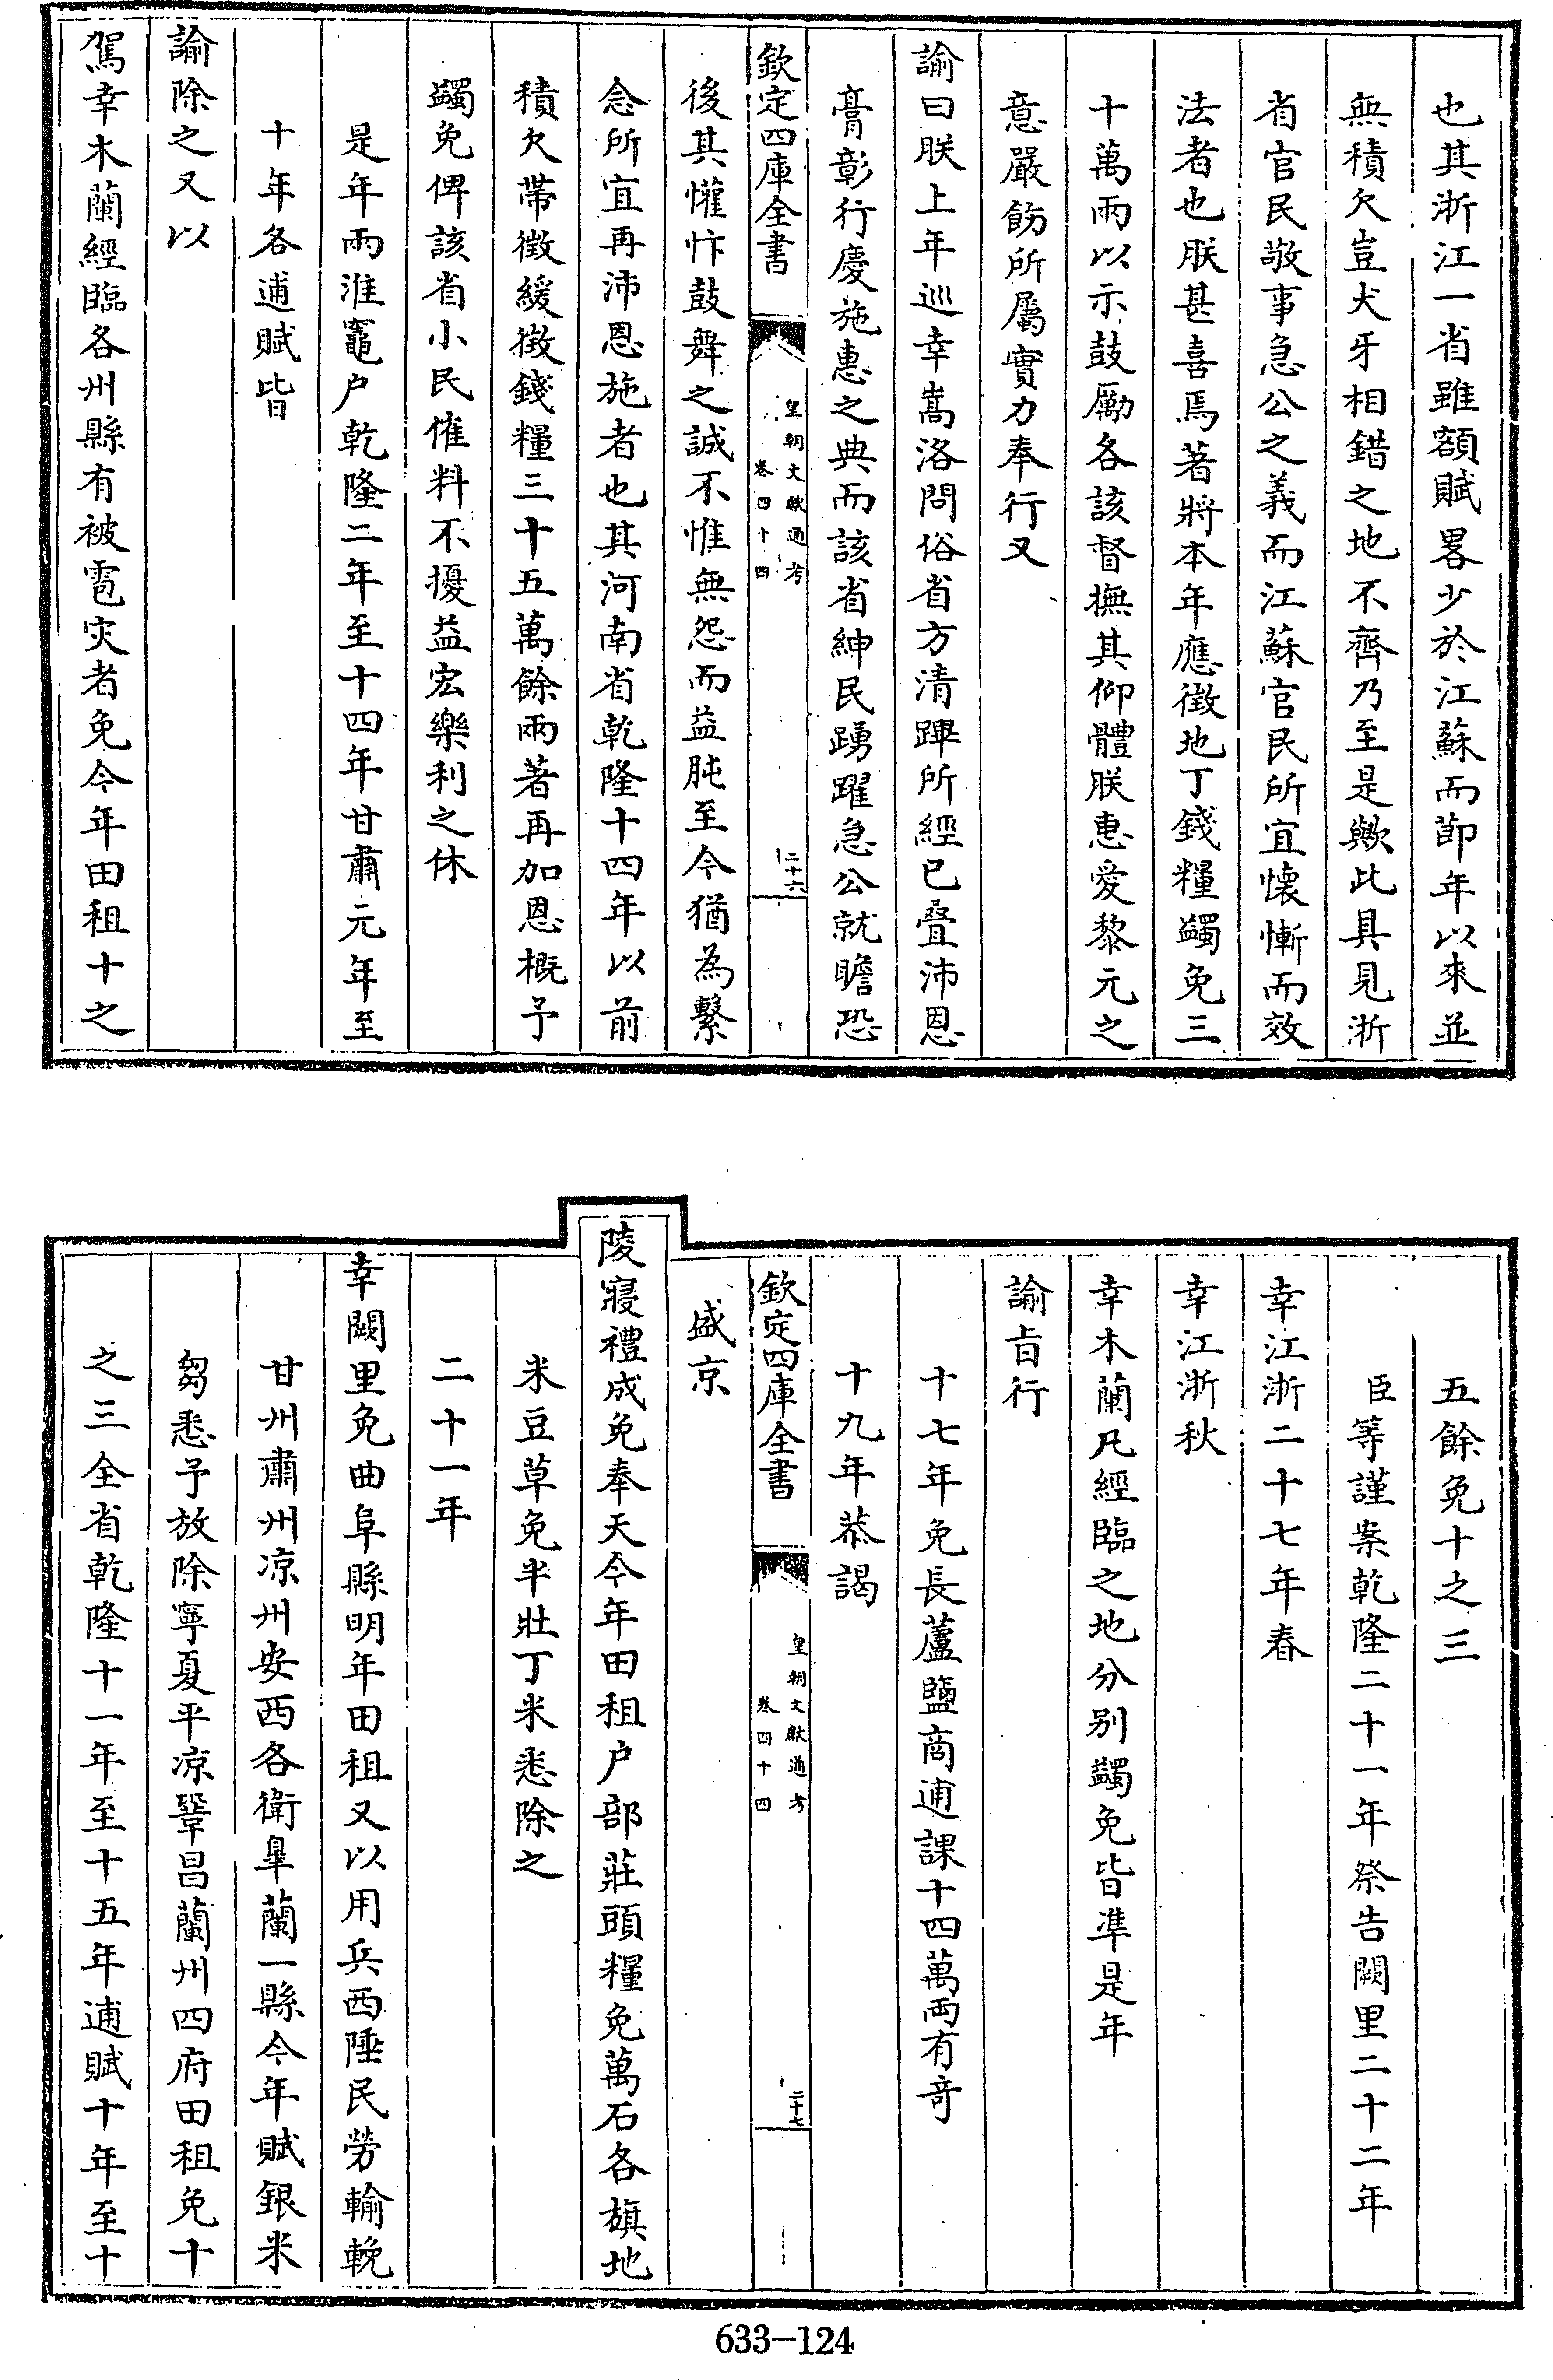 也其浙江一省雖額賦畧少於江蘇而節年以來並
無積欠豈犬牙相錯之地不齊乃至是歟此具見浙
省官民敬事急公之義而江蘇官民所宜懷慚而效
法者也朕甚喜焉著將本年應徵地丁錢糧蠲免三
十萬兩以示鼓勵各該督撫其仰體朕惠愛黎元之
意嚴飭所屬實力奉行又
諭曰朕上年巡幸嵩洛問俗省方清蹕所經已疊沛恩
膏彰行慶施惠之典而該省紳民踴躍急公就瞻恐
欽定四庫全書
皇朝文獻通考
卷四十四
二十六
後其懽忭鼓舞之誠不惟無怨而益肫至今猶為繫
念所宜再沛恩施者也其河南省乾隆十四年以前
積欠帶徵緩徵錢糧三十五萬餘兩著再加恩概予
蠲免俾該省小民催科不擾益宏樂利之休
是年兩淮竈户乾隆二年至十四年甘肅元年至
十年各逋賦皆
諭除之又以
駕幸木蘭經臨各州縣有被雹灾者免今年田租十之
五餘免十之三
臣等謹案乾隆二十一年祭告闕里二十二年
幸江浙二十七年春
幸江浙秋
幸木蘭凡經臨之地分別蠲免皆準是年
諭旨行
十七年免長蘆鹽商逋課十四萬兩有奇
十九年恭謁
欽定四庫全書
皇朝文獻通考
卷四十四
二十七
盛京
陵寢禮成免奉天今年田租户部莊頭糧免萬石各旗地
米豆草免半壯丁米悉除之
二十一年
幸闕里免曲阜縣明年田租又以用兵西陲民勞輸輓
甘州肅州凉州安西各衛臯蘭一縣今年賦銀米
芻悉予放除寧夏平凉鞏昌蘭州四府田租免十
之三全省乾隆十一年至十五年逋賦十年至十
633-124